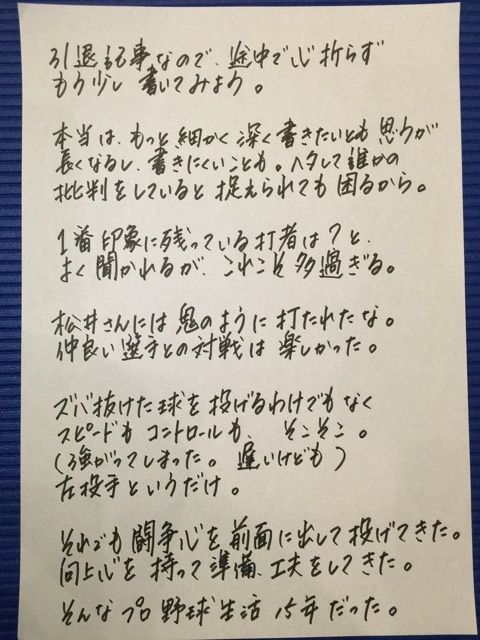 引退記事なので、途中で心折らず
もう少し書いてみよう。
本当は、もっと細かく深く書きたいとも思うが
長くなるし、書きにくいことも。ヘタして誰かの
批判をしていると捉えられても困るから。
1番印象に残っている打者は?と、
よく聞かれるが、これこそ多過ぎる。
松井さんには鬼のように打たれたな。
仲良い選手との対戦は楽しかった。
ズバ抜けた球を投げるわけでもなく
スピードもコントロールも、そこそこ。
(強がってしまった。遅いけども)
左投手というだけ。
それでも闘争心を前面に出して投げてきた。
向上心を持って準備、工夫をしてきた。
そんなプロ野球生活15年だった。